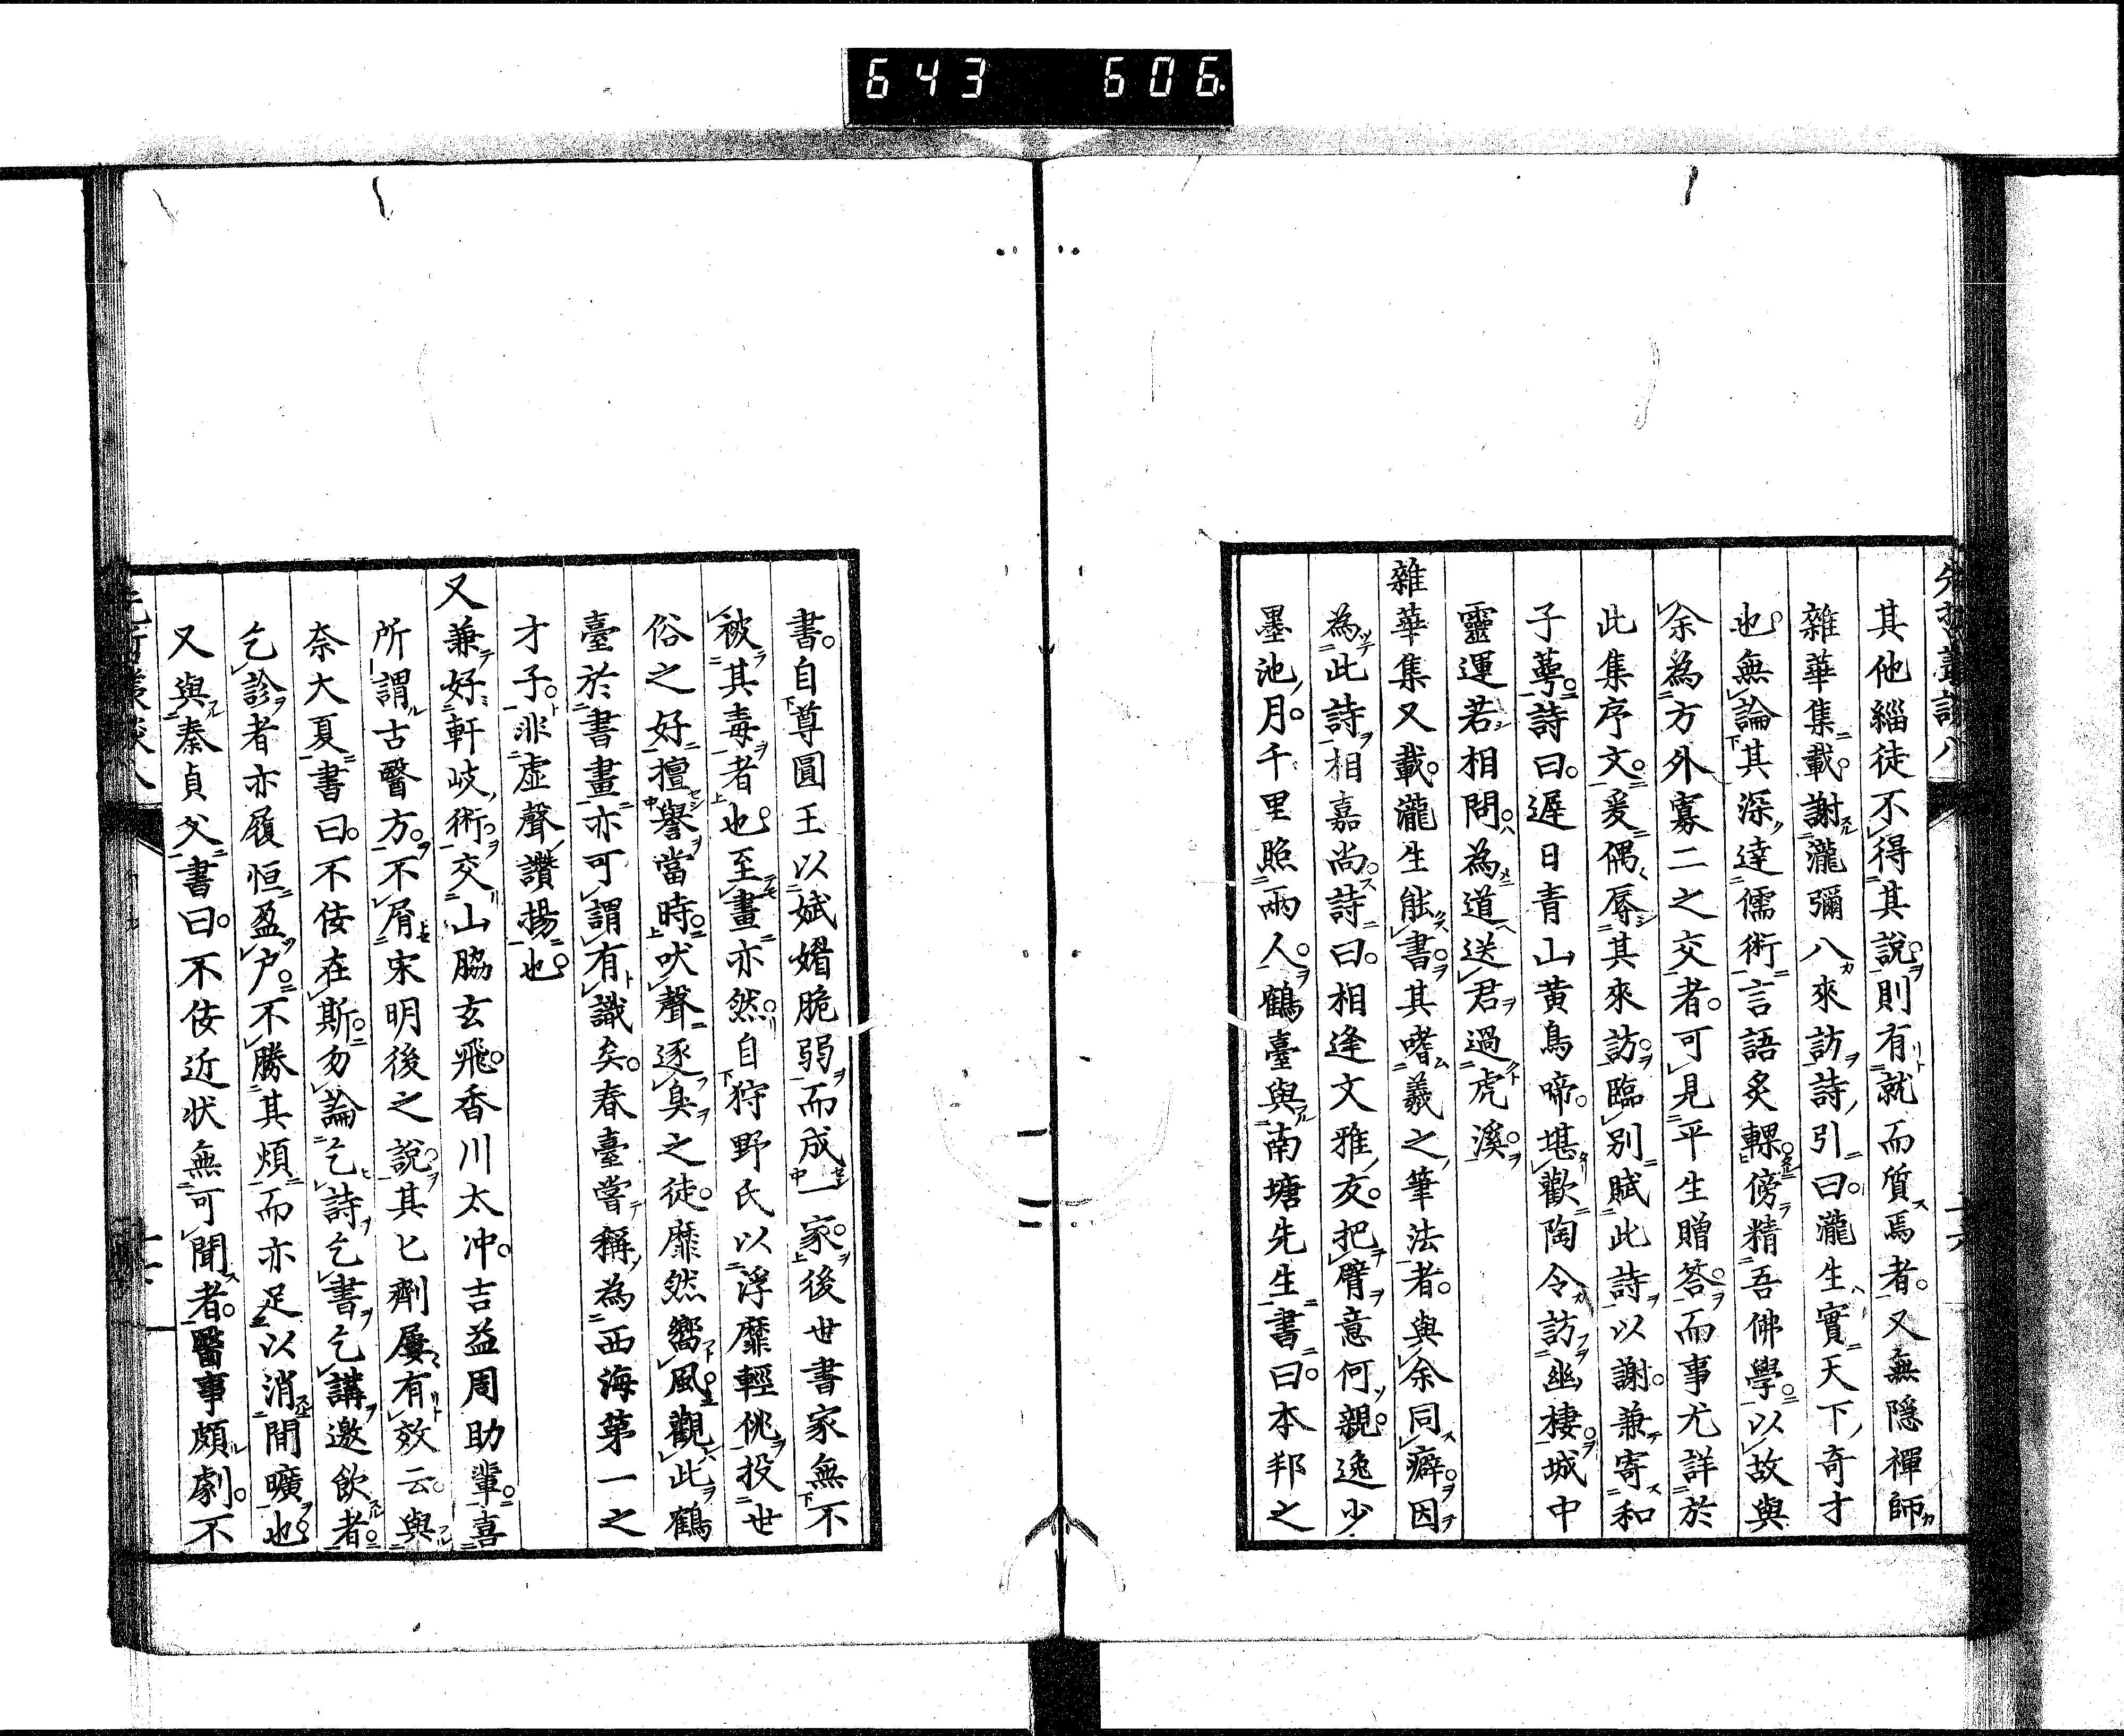 643 606
其他緇徒不得其說則有就而質焉者又無隱禪師
雜華集載謝瀧彌八來訪詩引曰瀧生實天下奇才
也無論其深達儒術言語炙輠傍精吾佛學以故與
余為方外寡二之交者可見平生贈答而事尤詳於
此集序文爰偶辱其來訪臨別賦此詩以謝兼寄和
子蕚詩曰遲日青山黃鳥啼堪歡陶令訪幽棲城中
靈運若相問為道送君過虎溪
雜華集又載瀧生能書其嗜羲之筆法者與余同癖因
為此詩相嘉尚詩曰相逢文雅友把臂意何親逸少
墨池月千里照兩人鶴臺與南塘先生書曰本邦之
書自尊圓王以娬媚脆弱而成一家後世書家無不
被其毒者也至畫亦然自狩野氏以浮靡輕佻投世
俗之好擅譽當時吠聲逐臭之徒靡然嚮風觀此鶴
臺於書畫亦可謂有識矣春臺嘗稱為西海第一之
才子非虛聲讚揚也
又兼好軒岐術交山脇玄飛香川太冲吉益周助輩喜
所謂古醫方不屑宋明後之說其匕劑屢有效云與
奈大夏書曰不佞在斯勿論乞詩乞書乞講邀飲者
乞診者亦履恒盈户不勝其煩而亦足以消閒曠也
又與秦貞父書曰不佞近状無可聞者醫事頗劇不